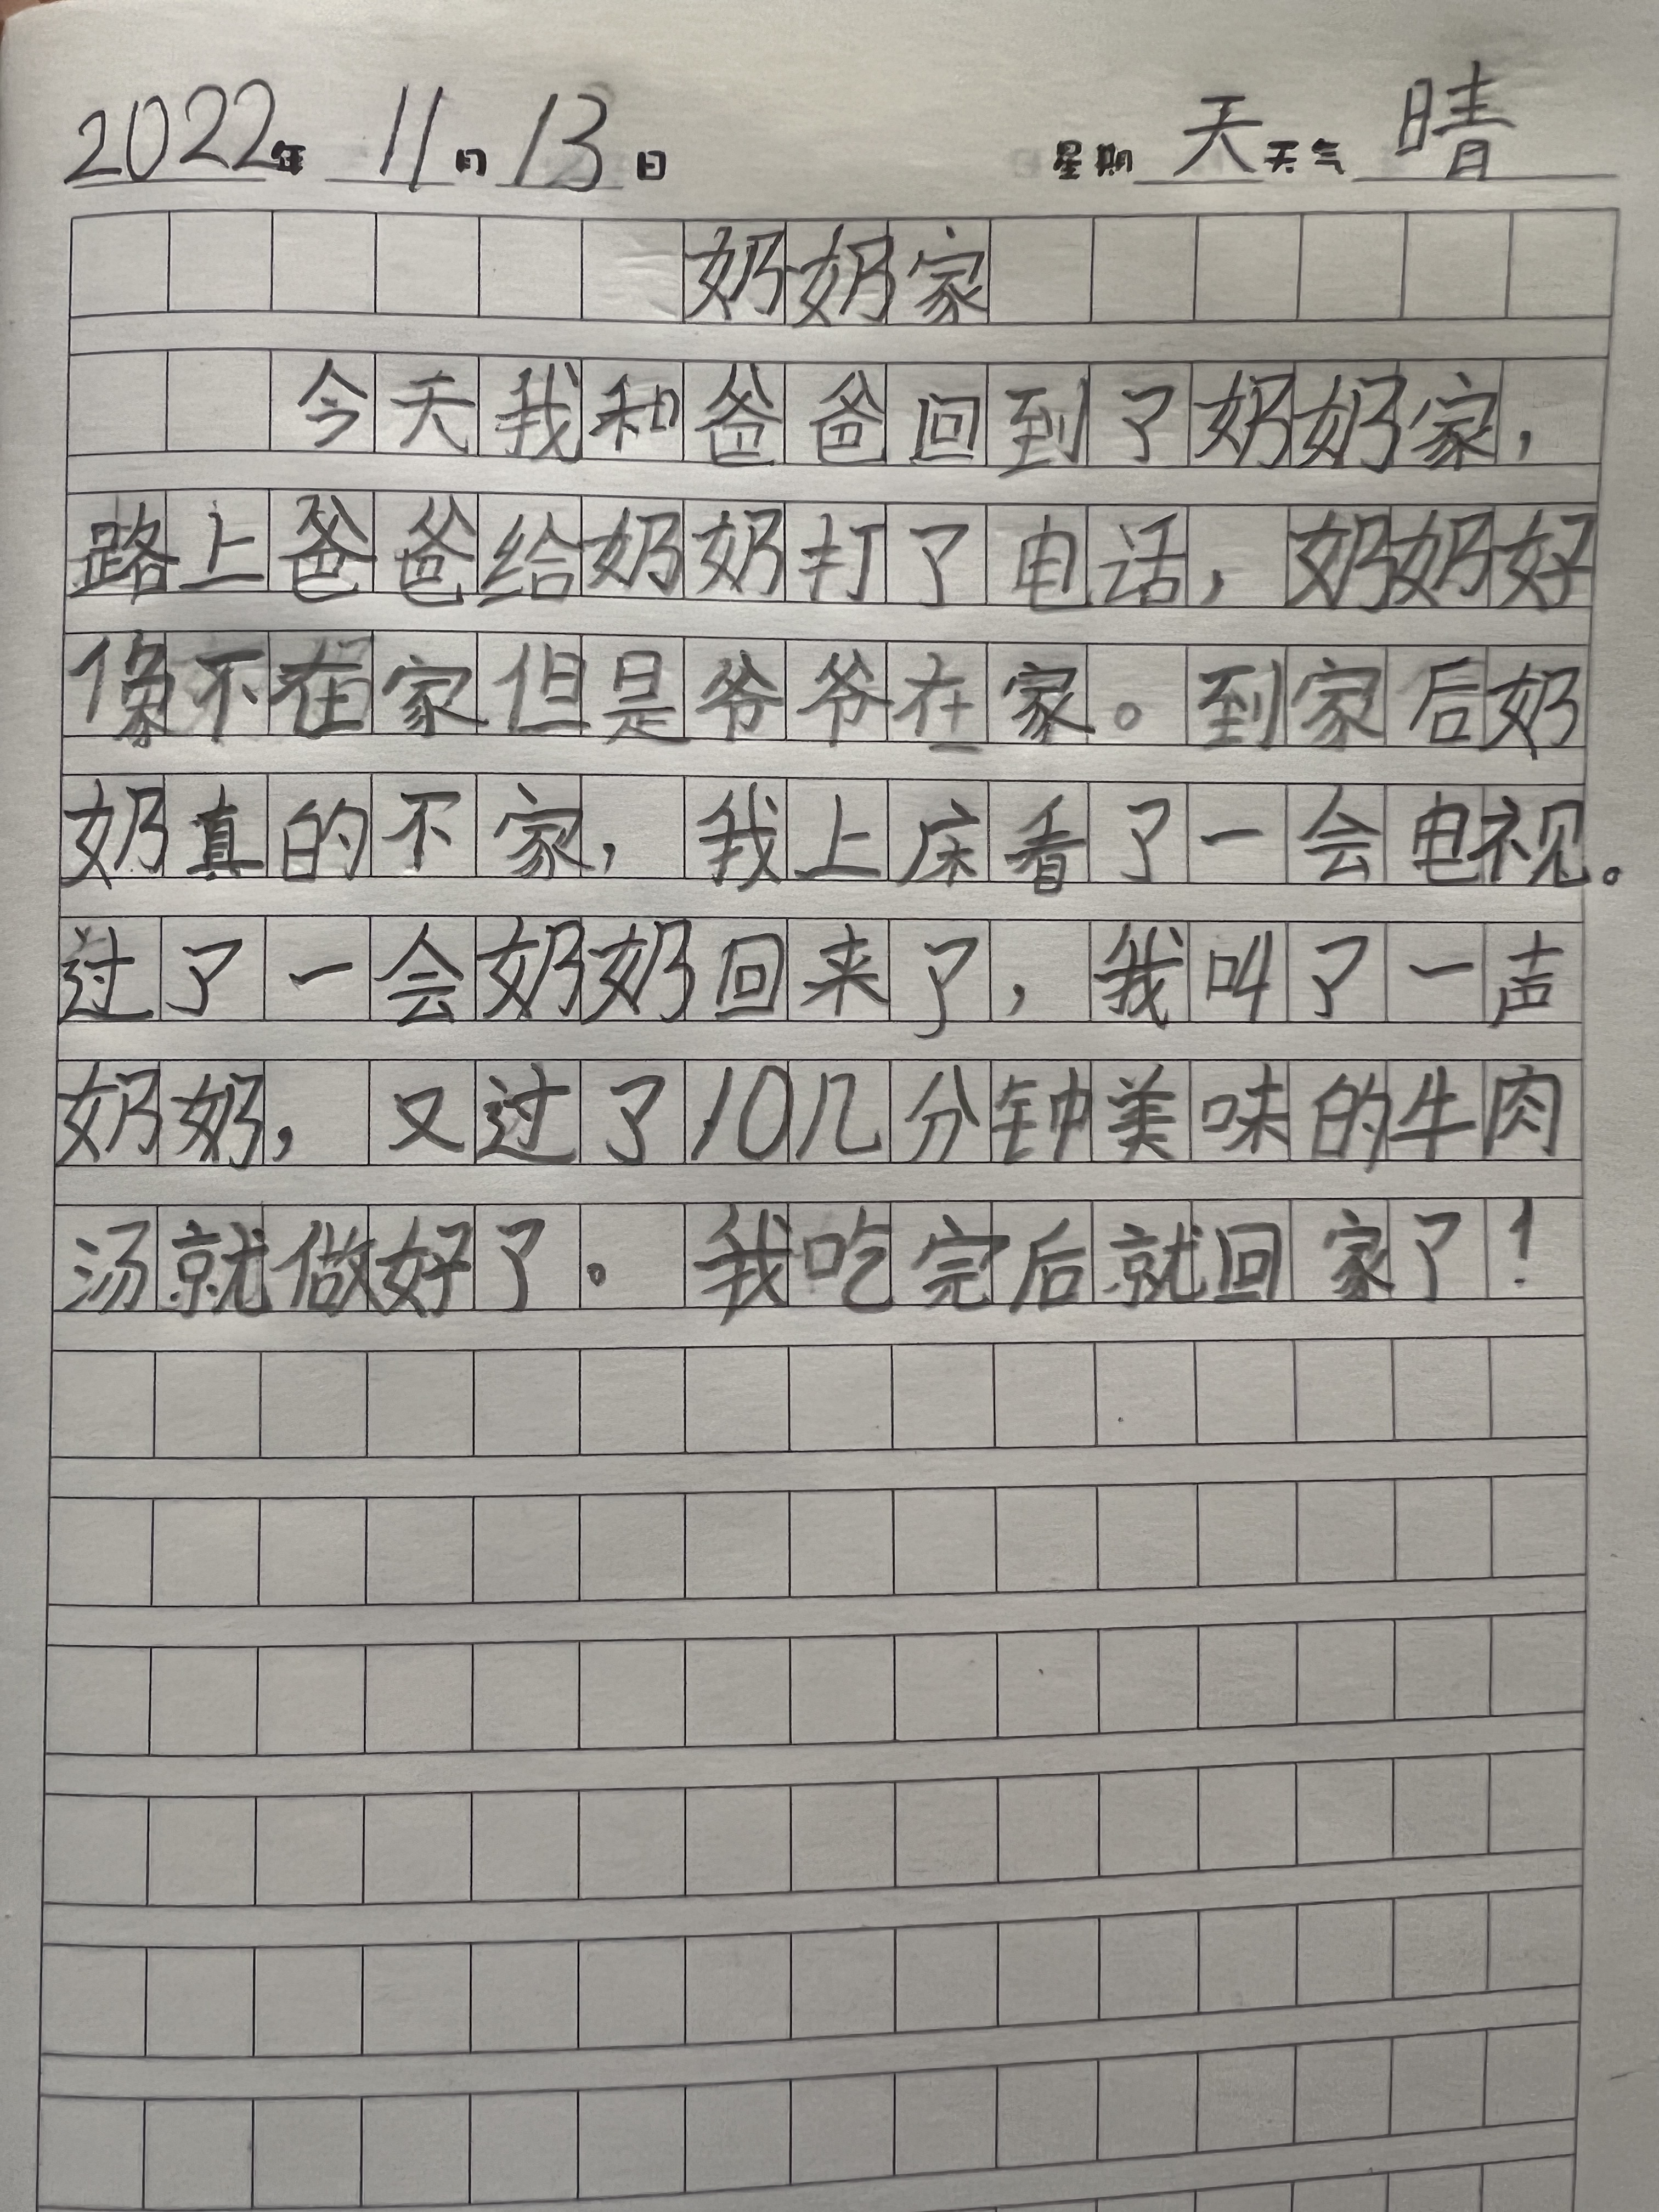 2022年 11月 13日 星期 天 天气 晴
奶奶家
今天我和爸爸回到了奶奶家，
路上爸爸给奶奶打了电话，奶奶好
像不在家但是爷爷在家。到家后奶
奶真的不家，我上床看了一会电视。
过了一会奶奶回来了，我叫了一声
奶奶，又过了10几分钟美味的牛肉
汤就做好了。我吃完后就回家了！